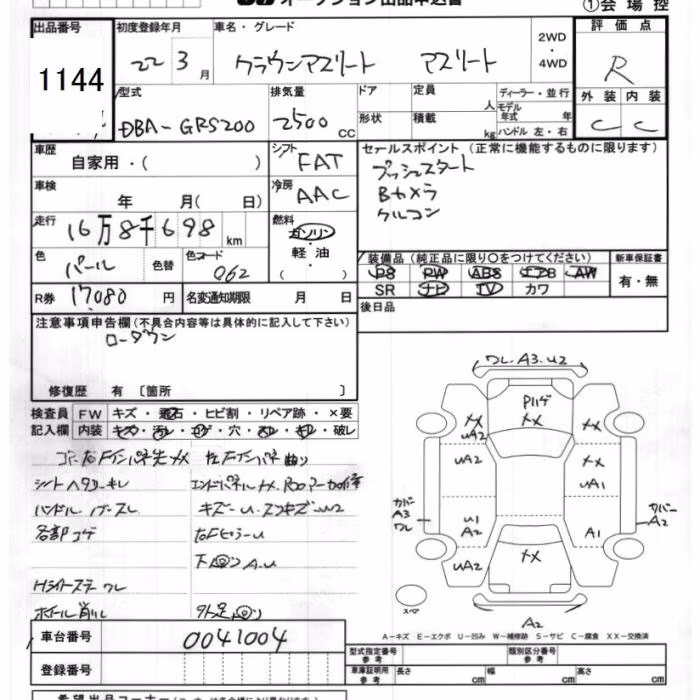 オークション出品申込書 ①会場控
出品番号 初度登録年月 車名・グレード 2WD・4WD 評価点
1144 22 3月 クラウンアスリート アスリート R
型式 排気量 ドア 定員 人 ディーラー・並行 外装 内装
DBA-GRS200 2500cc 形状 積載 kg モデル年式 年 ハンドル 左・右 C C
車歴 自家用・( ) シフト FAT セールスポイント (正常に機能するものに限ります)
プッシュスタート
車検 年 月( 日) 冷房 AAC Bカメラ
クルコン
走行 16万8千698km 燃料 ガソリン・軽油・( )
色 パール 色替 色コード 062 装備品 (純正品に限り○をつけてください) 新車保証書
PS PW ABS エアB AW 有・無
R券 17080円 名変通知期限 月 日 SR ナビ TV カワ
注意事項申告欄(不具合内容等は具体的に記入して下さい) 後日品
ローダウン
修復歴 有 〔箇所 〕
検査員 FW キズ・飛石・ヒビ割・リペア跡・×要
記入欄 内装 キズ・汚レ・コゲ・穴・スレ・キレ・破レ
シートヘタリ・キレ
ハンドル
各部コゲ
ホイール削レ
ワレ.A3.U2
Pハゲ
XX
XX UA2 XX
UA2 XX
UA1
カバー A3 ワレ カバー A2
U1 A2 A1
UA2 XX
スペア
A2
A-キズ E-エクボ U-凹み W-補修跡 S-サビ C-腐食 XX-交換済
車台番号 0041004 型式指定番号 参考 類別区分番号 参考
登録番号 車庫証明用 参考 長さ cm 幅 cm 高さ cm